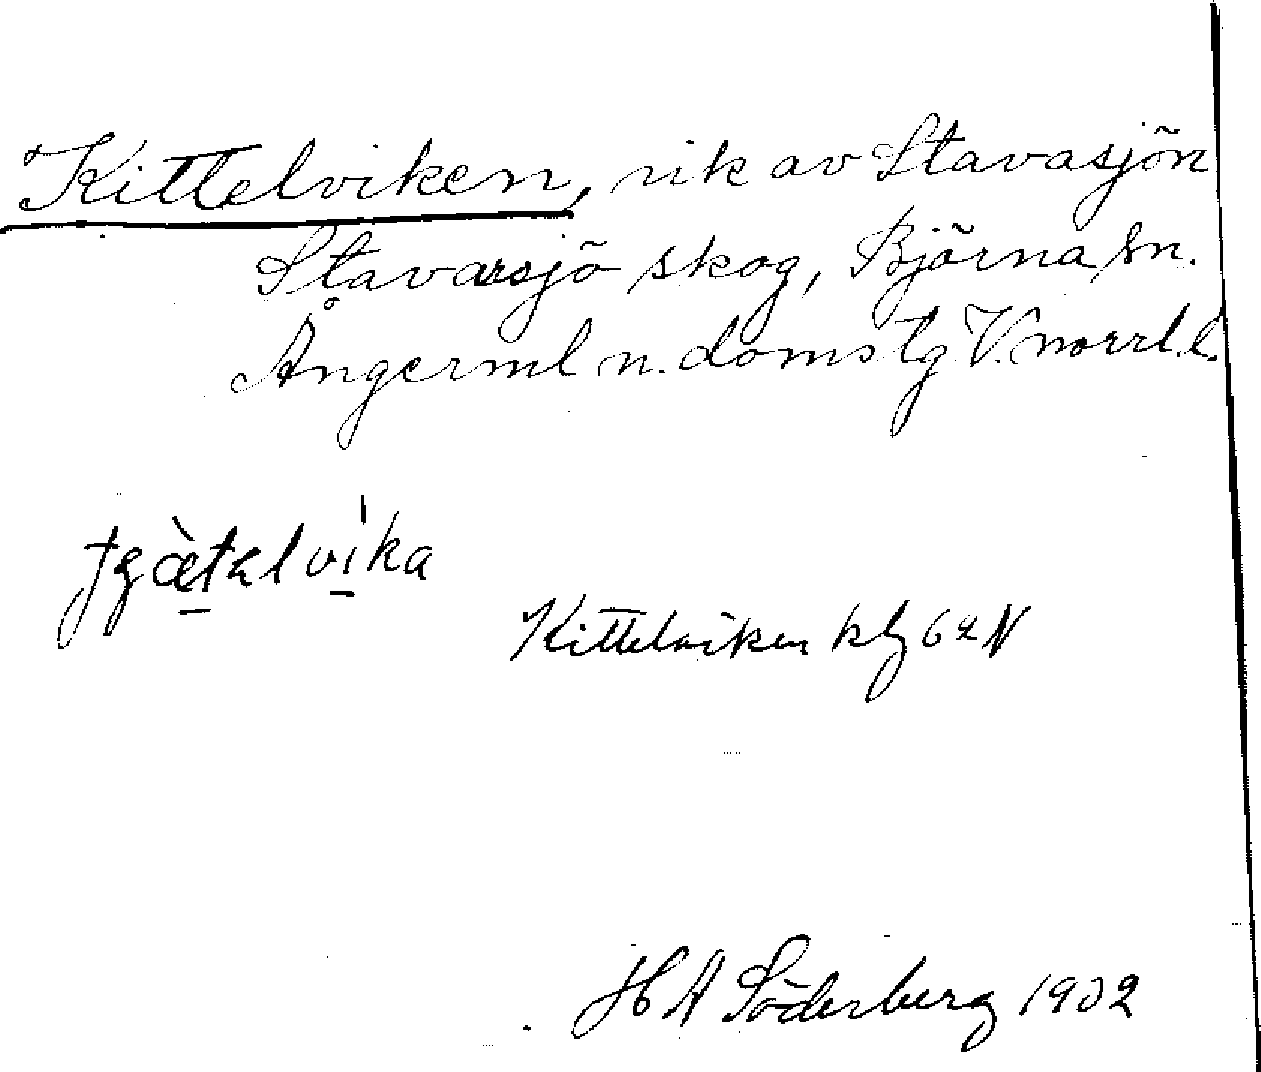 Kittelviken, vik av Stavasjön
Stavarsjö skog, Björna sn.
Ångerml n. domslg V. norrl. l.
Kittelviken kbg 62 N
H A Söderberg 1932